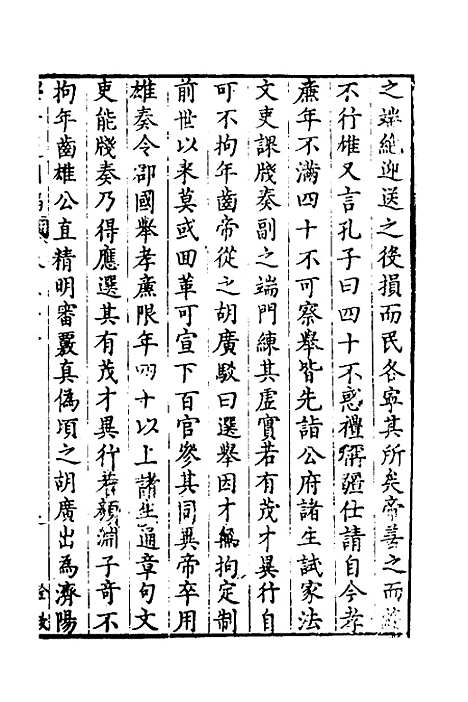 之端絕迎送之役損而民各寧其所矣帝善之而
不行雄又言孔子曰四十不惑禮稱彊仕請自今孝
廉年不滿四十不可察舉皆先詣公府諸生試家法
文吏課牋奏副之端門練其虛實若有茂才異行自
可不拘年齒帝從之胡廣駁曰選舉因才無拘定制
前世以來莫或回革可宣下百官參其同異帝卒用
雄奏令郡國舉孝廉限年四十以上諸生通章句文
吏能牋奏乃得應選其有茂才異行若顏淵子奇不
拘年齒雄公直精明審覈真偽頃之胡廣出為濟陽